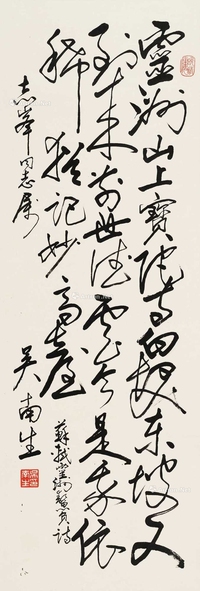 靈洲山上寶陀寺白髮東坡又
到來前世德雲今是我依
稀猶記妙高臺
蘇軾詩
同志屬
吴南生